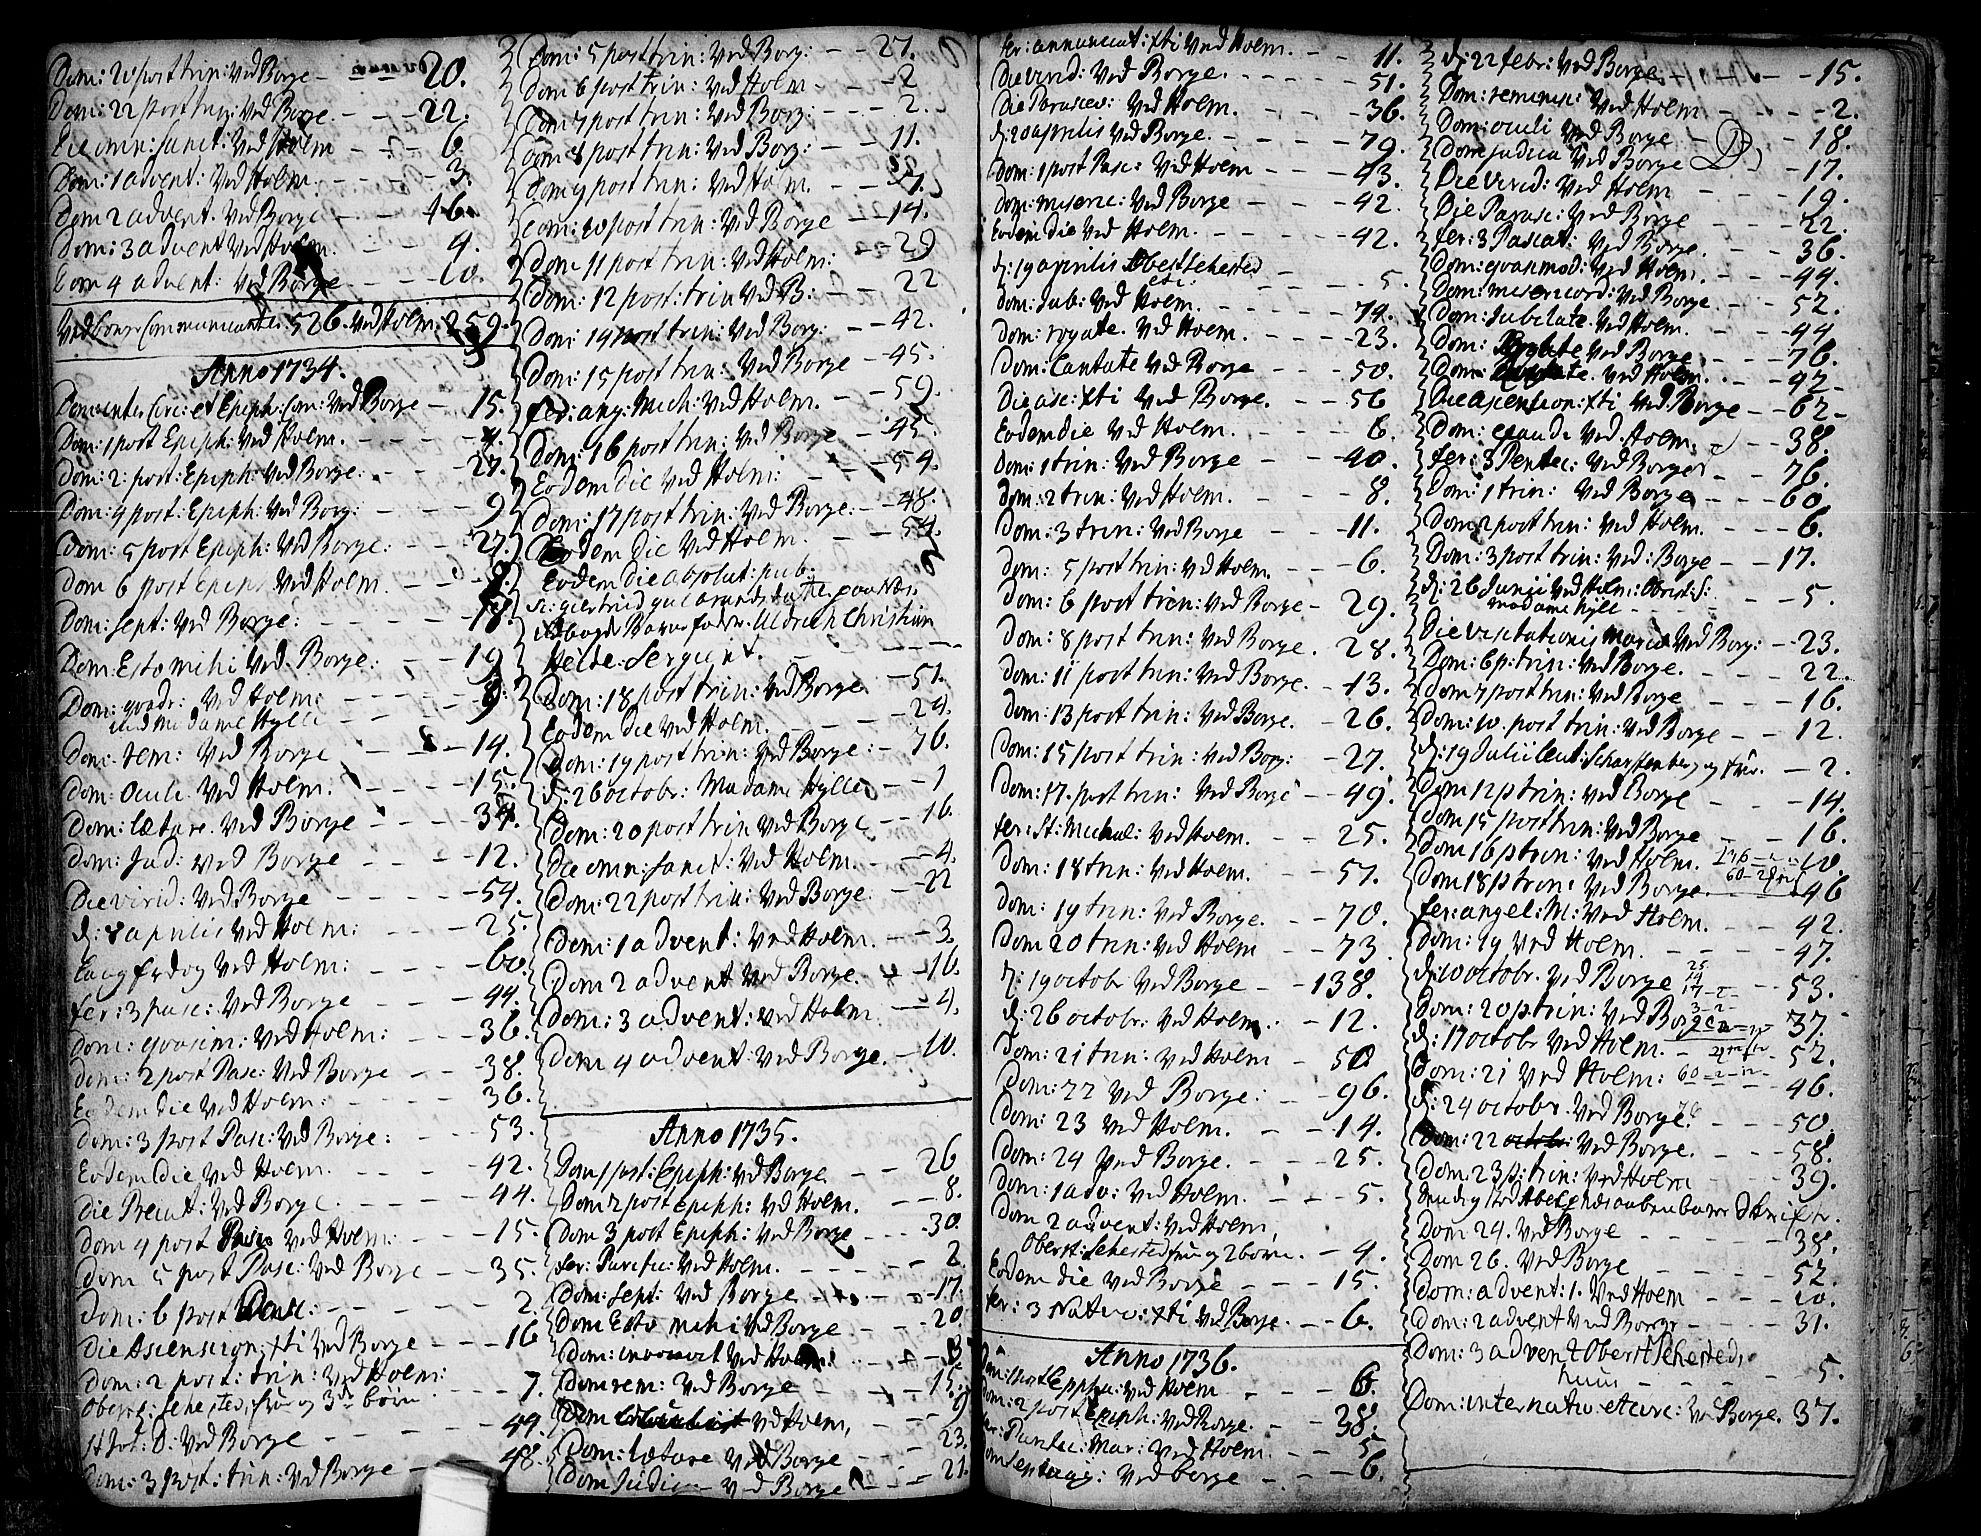 Dom: 21 post trin: Ved Borge - - 20.
Dom: 22 post trin: Ved Borge - - 22.
Die omn: sanct: Ved Holm - - 6
Dom: 1 advent: Ved Holm. - - 3.
Dom 2 advent. Ved Borge - - 16.
Dom: 3 advent Ved Holm. - - 4.
Dom 4 advent: Ved Borge - - 10.
Ved Borge Communicanter 526. Ved Holm: 259.
Anno 1734.
Dom inter Circ: et Epiph: Ved Borge - 15.
Dom: 1 post Epiph: Ved Holm. - - 4.
Dom: 2: post: Epiph: Ved Borge: - - 27.
Dom: 4 post: Epiph: Ved Borg: - - 9
Dom: 5 post Epiph: Ved Borge: - - 27.
Dom 6 post Epiph Ved Holm. - -
Dom: Sept: Ved Borge: - - 18.
Dom: Esto mihi Ved Borge: - - 19
Dom: qvadr: Ved Holm: - - 9.
Madame Hylle
Dom: rem: Ved Borge - - 14.
Dom: Oculi Ved Holm. - - 15.
Dom: lætare. Ved Borge - - 34.
Dom: Jud: Ved Borge - - 12.
Die virid: Ved Borge - - 54.
d: 8 aprilis Ved Holm: - - 25.
Langfredag Ved Holm: - - 60.
fer: 3 pasc: Ved Borge - - 44.
Dom: qvasim: Ved Holm: - - 36.
Dom: 2 post Pasc: Ved Borge - - 38.
Eodem die Ved Holm: - - 36.
Dom: 3 post Pasc: Ved Borge: - - 53.
Eodem die Ved Holm. - - 42.
Die Penit: Ved Borge. - - 44.
Dom 4 post Pasc Ved Holm: - - 15.
Dom 5 post Pasc: Ved Borge - - 35.
Dom: 6 post Pasc: - - 2.
Die Ascension: xti Ved Borge - - 16
Dom: 2 post: trin: Ved Holm:
Oberst: Sehested, frue og 3de børn - - 7.
St Joh: D: Ved Borge - - 44.
Dom: 3 post: trin: Ved Borge - - 48.
Dom: 5 post trin: Ved Borg: - - 27.
Dom 6 post trin: Ved Holm - - 2
Dom 7 post trin: Ved Borg: - - 2.
Dom 8 post trin: Ved Borg: - - 11.
Dom 9 post trin: Ved Holm. - -
Dom: 10 post trin: Ved Borge - - 14.
Dom 11 post trin: Ved Holm: - - 29
Dom: 12 post: trin Ved B: - - 22
Dom: 14 post trin: Ved Borg: - - 42.
Dom: 15 post trin: Ved Borge - - 45.
fer: ang: Mich: Ved Holm. - - 59.
Dom: 16 post trin: Ved Borge - - 45.
Eodem die Ved Holm: - - 54.
Dom: 17 post trin: Ved Borge: - - 48.
Eodem die Ved Holm. - - 54.
Eodem die absolut: pub.
Barnefader: Uldrich Christian
Heide: Sergiant. - -
Dom: 18 post trin: Ved Borge - - 51.
Eodem die Ved Holm. - - 24.
Dom: 19 post trin: Ved Borge: - 76.
d: 26 octobr: Madame Hylle - - 1
Dom: 20 post trin Ved Borge - - 16.
Die omn: sanct: Ved Holm. - - 4.
Dom: 22 post trin: Ved Borge: - - 22
Dom: 1 advent: Ved Holm. - - 3.
Dom 2 advent Ved Borge. - - 16.
Dom: 3 advent: Ved Holm - - 4.
Dom 4 advent: Ved Borge. - 10.
Anno 1735.
Dom 1 post: Epiph: Ved Borge - - 26
Dom 2 post Epiph: Ved Holm. - - 8.
Dom 3 post Epiph: Ved Borge - - 30.
fer: Purific: Ved Holm. - - 2
Dom: Sept: Ved Borge - - 17.
Dom Esto mihi Ved Borge - - 20
Dom: invocavit Ved Holm: - - 3
Dom rem: Ved Borge - - 15.
Dom Ved Holm, - - 9
Dom: lætare Ved Borge - - 23.
Dom Judica Ved Borge - - 21.
fer: annunciat: xti Ved Holm. - - 11.
Die virid: Ved Borge. - - 51.
Die Parascev: Ved Holm. - - 36.
d: 10 aprilis Ved Borge. - - 79.
Dom: 1 post Pasc: Ved Holm - - 43.
Dom: miseric: Ved Borge - - 42.
Eodem die Ved Holm. - - 42.
d: 19 aprilis Oberst Sehested - - 5.
Dom: Jub: Ved Holm. - - 74.
Dom: rogate. Ved Holm. - - 23.
Dom: Cantate Ved Borge - - 50.
Die asc: xti Ved Borge. - - 56
Eodem die Ved Holm. - - 6.
Dom: 1 trin: Ved Borge - - 40.
Dom: 2 trin: Ved Holm. - - 8.
Dom: 3 trin: Ved Borge - - 11.
Dom: 5 post trin: Ved Holm. - - 6.
Dom: 6 post trin: Ved Borge - 29.
Dom: 8 post trin: Ved Borge. 28.
Dom: 11 post trin: Ved Borge. - 13.
Dom: 13 post trin: Ved Borge. - 26.
Dom: 15 post trin: Ved Borg: - 27.
Dom: 17. post trin: Ved Borge - - 49.
fer: St: Michael: Ved Holm. - - 25.
Dom: 18 trin: Ved Holm. - - 51.
Dom: 19 trin: Ved Borge. - - 70.
Dom 20 trin: Ved Holm - - 73
d: 19 octobr Ved Borge - - 138.
d: 26 octobr: Ved Holm. - 12.
Dom: 21 trin: Ved Holm - 50
Dom: 22 Ved Borge: - - 96.
Dom: 23 Ved Holm. - - 14.
Dom: 24 Ved Borge. - - 25.
Dom: 1 adv: Ved Holm. - - 5.
Dom 2 advent: Ved Holm,
Oberst: Sehested frue og 2 børn. - 4.
Eodem die Ved Borge - - 15.
fer: 3 Nativ: xti Ved Borge. - - 6.
Anno 1736.
Dom: 1 post Epiph: Ved Holm - - 6.
Dom: 2 post Epiph: Ved Borge. - - 38.
fer: Purific: Mar: Ved Holm. - - 5
Dom Septuag: Ved borge - - 6.
d: 22 febr: Ved Borge - - 15.
Dom: reminisc: Ved Holm - - 2.
Dom: oculi Ved Borge - 18.
Dom Judica Ved Borge - 17.
Die virid: Ved Holm - - 19.
Die Parasc: Ved Borge - - 22.
fer: 3 Pascat: Ved Borge. - - 36.
Dom: qvasimod: Ved Holm. - - 44.
Dom: misericord: Ved Borge - - 52.
Dom: Jubilate. Ved Holm. - - 44
Dom: Ved Borge. - - 76.
Dom: Ved Holm. - - 42
Die ascension: xti Ved Borge - - 62
Dom: exaudi Ved Holm. - - 38.
fer: 3 Pentec: Ved Borge - - 76.
Dom: 1 trin: Ved Borge - - 60.
Dom 2 post trin: Ved Holm. - - 6.
Dom: 3 post trin: Ved: Borge - - 17.
d: 26 Junii Ved Holm: Oberst: S:
madame hylle - - 5.
Die visitationis Mariæ Ved Borg: - 23.
Dom: 6 p: trin: Ved Borge. - - 22.
Dom 7 post trin: Ved Borge - - 16.
Dom: 10. post trin: Ved Borge - - 12.
d: 19 Julii Leut: Scharffenberg og frue. - 2.
Dom 12 p trin: Ved Borge - - 14.
Dom 15 post trin: Ved Borge - - 16.
Dom 16 p trin: Ved Holm. - - 10.
Dom 18 p trin: Ved Borge. - - 46
fer: angel: M: Ved Holm. - - 42.
Dom: 19 Ved Holm. - - 47.
d: 10 octobr. Ved Borge - - 53.
Dom: 20 p trin: Ved Borge - - 37.
d: 17 octobr Ved Holm. - - 52.
Dom: 21 Ved Holm: - - 46.
d: 24 octobr. Ved Borge. - - 50.
Dom: 22 Ved Borge. - - 58.
Dom: 23 p: trin: Ved Holm - - 39.
Dom 24. Ved Borge - - 38.
Dom 26. Ved Borge - - 52.
Dom: advent: 1. Ved Holm - - 10.
Dom: 2 advent Ved Borge - - 31.
Dom: 3 advent Oberst Sehested,
- - 5.
Dom: inter nativ: et circ: Ved Borge. 37.